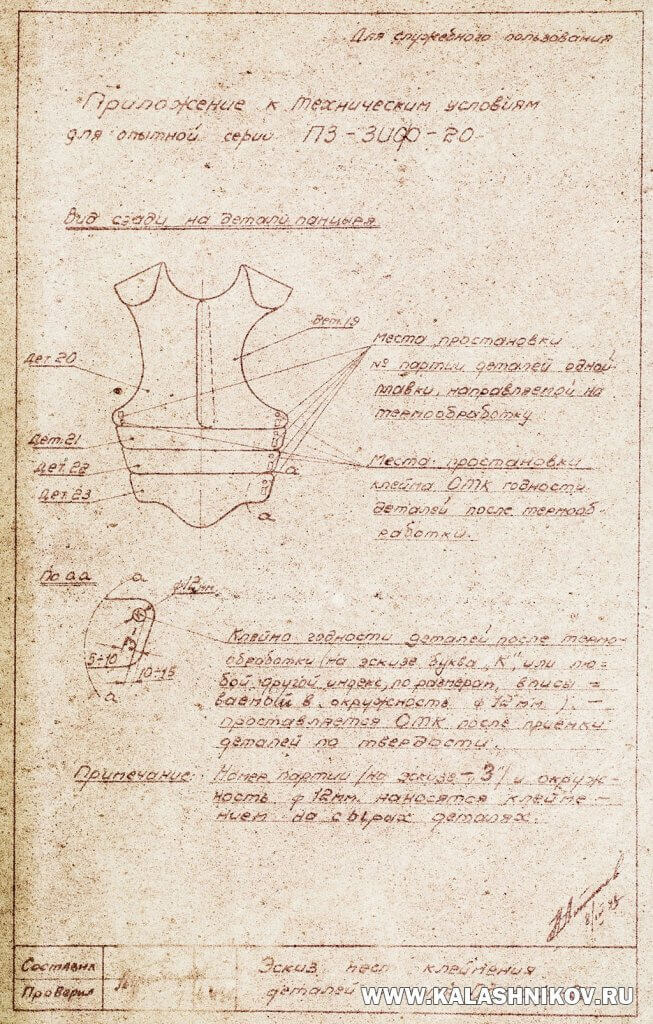 Для служебного пользования
Приложение к техническим условиям
для опытной серии ПЗ-ЗИФ-20
Вид сзади на детали панцыря
Дет.19
Дет.20
Места простановки
№ партии деталей одной
плавки, направляемой на
термообработку
Дет.21
Дет.22
Дет.23
а
а
Места простановки
клейма ОТК годности
деталей после термооб-
работки.
По аа
а
ф12мм
К
3
5÷10
10÷15
а
Клеймо годности деталей после термо-
обработки (на эскизе буква „К", или лю-
бой другой индекс, по размерам, вписы-
ваемый в окружность ф 12 мм.) -
проставляется ОТК после приемки
деталей по твердости.
Примечание: Номер партии (на эскизе - 3") и окруж-
ность ф 12мм. наносятся клейме-
нием на сырых деталях.
Составил
Проверил
Эскиз мест клеймения
деталей
WWW.KALASHNIKOV.RU